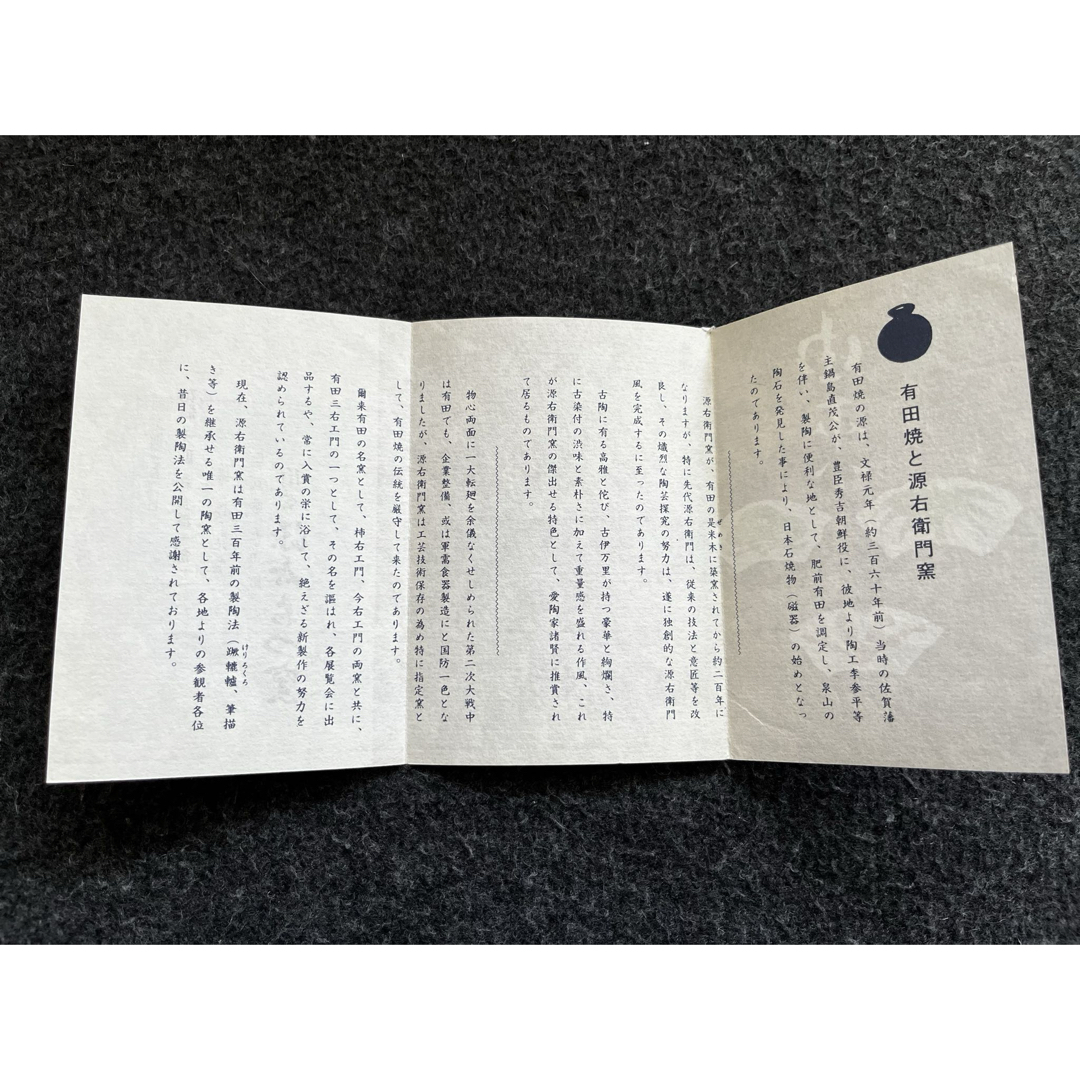 有田焼と源右衛門窯
有田焼の源は、文禄元年（約三百六十年前）当時の佐賀藩
主鍋島直茂公が、豊臣秀吉朝鮮役に、彼地より陶工李参平等
を伴い、製陶に便利な地として、肥前有田を調定し、泉山の
陶石を発見した事により、日本石焼物（磁器）の始めとなっ
たのであります。
源右衛門窯が、有田の是米木に築窯されてから約二百年に
なりますが、特に先代源右衛門は、従来の技法と意匠等を改
良し、その熾烈な陶芸探究の努力は、遂に独創的な源右衛門
風を完成するに至ったのであります。
古陶に有る高雅と侘び、古伊万里が持つ豪華と絢爛さ、特
に古染付の渋味と素朴さに加えて重量感を盛れる作風、これ
が源右衛門窯の傑出せる特色として、愛陶家諸賢に推賞され
て居るものであります。
物心両面に一大転廻を余儀なくせしめられた第二次大戦中
は有田でも、企業整備、或は軍需食器製造にと国防一色とな
りましたが、源右衛門窯は工芸技術保存の為め特に指定窯と
して、有田焼の伝統を厳守して来たのであります。
爾来有田の名窯として、柿右エ門、今右エ門の両窯と共に、
有田三右エ門の一つとして、その名を謳はれ、各展覧会に出
品するや、常に入賞の栄に浴して、絶えざる新製作の努力を
認められているのであります。
現在、源右衛門窯は有田三百年前の製陶法（蹴轆轤、筆描
き等）を継承せる唯一の陶窯として、各地よりの参観者各位
に、昔日の製陶法を公開して感謝されております。